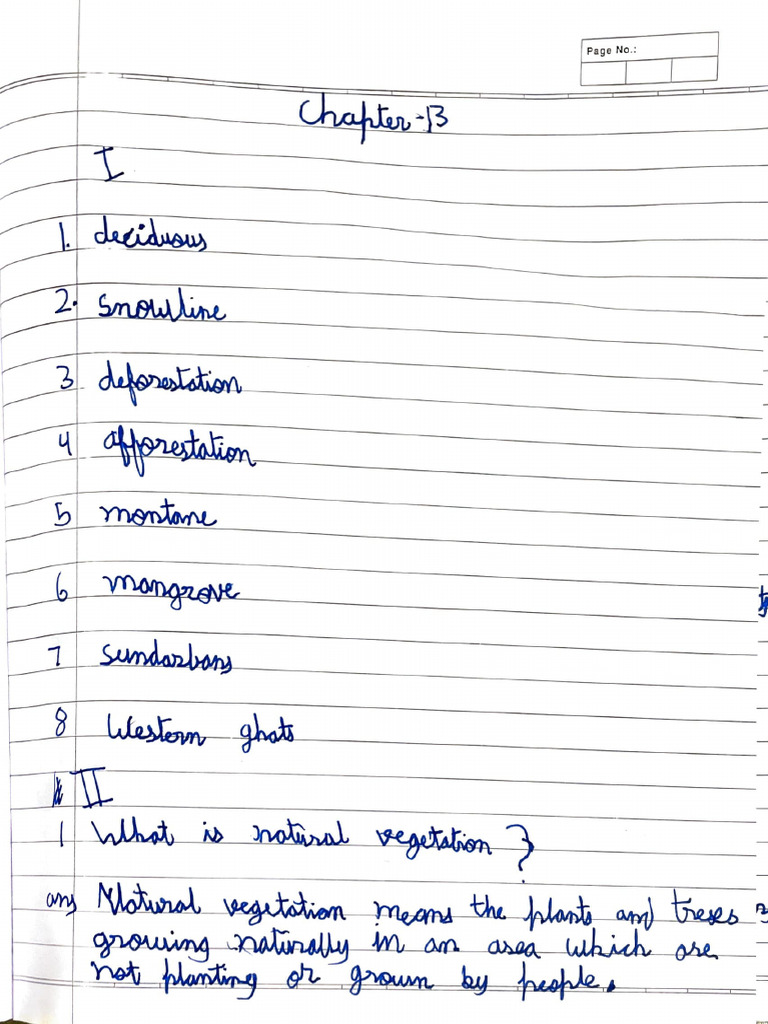 Page No.:
Chapter-13
I
1. deciduous
2. snowline
3 deforestation
4 afforestation
5 montane
6 mangrove
7 sundarbans
8 Western ghats
II
1 What is natural vegetation?
ans Natural vegetation means the plants and trees
growing naturally in an area which are
not planting or grown by people.